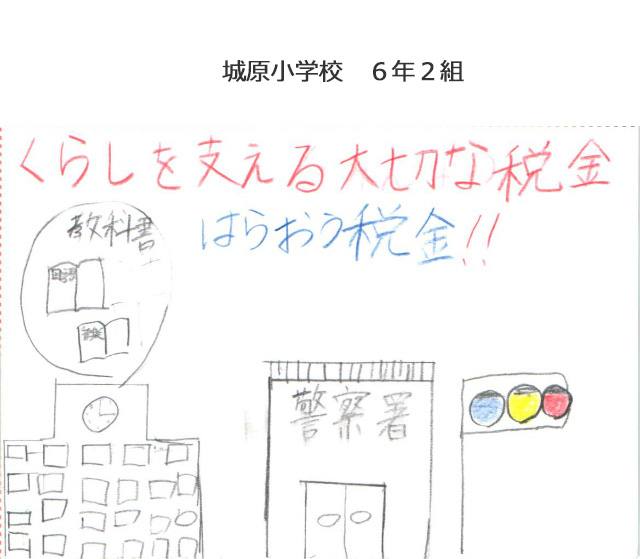 城原小学校　６年２組
くらしを支える大切な税金
はらおう税金!!
教科書
国語
音楽
警察署